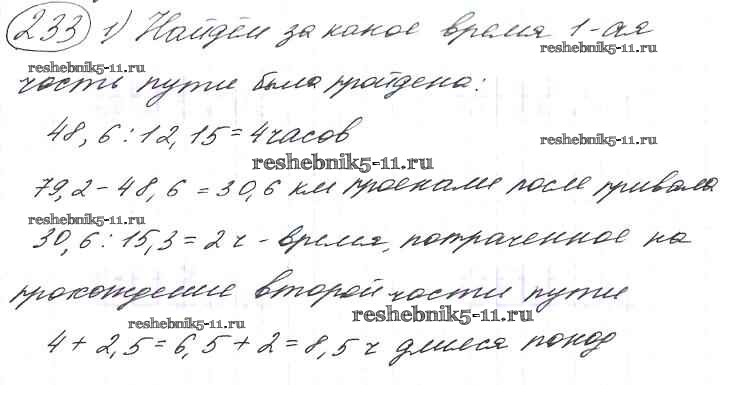 233 1) Найдём за какое время 1-ая
reshebnik5-11.ru
reshebnik5-11.ru
часть пути была пройдена:
48,6 : 12,15 = 4 часов
reshebnik5-11.ru
reshebnik5-11.ru
79,2 - 48,6 = 30,6 км проехали после привала
reshebnik5-11.ru
30,6 : 15,3 = 2 ч - время, потраченное на
прохождение второй части пути
reshebnik5-11.ru
reshebnik5-11.ru
4 + 2,5 = 6,5 + 2 = 8,5 ч длился поход